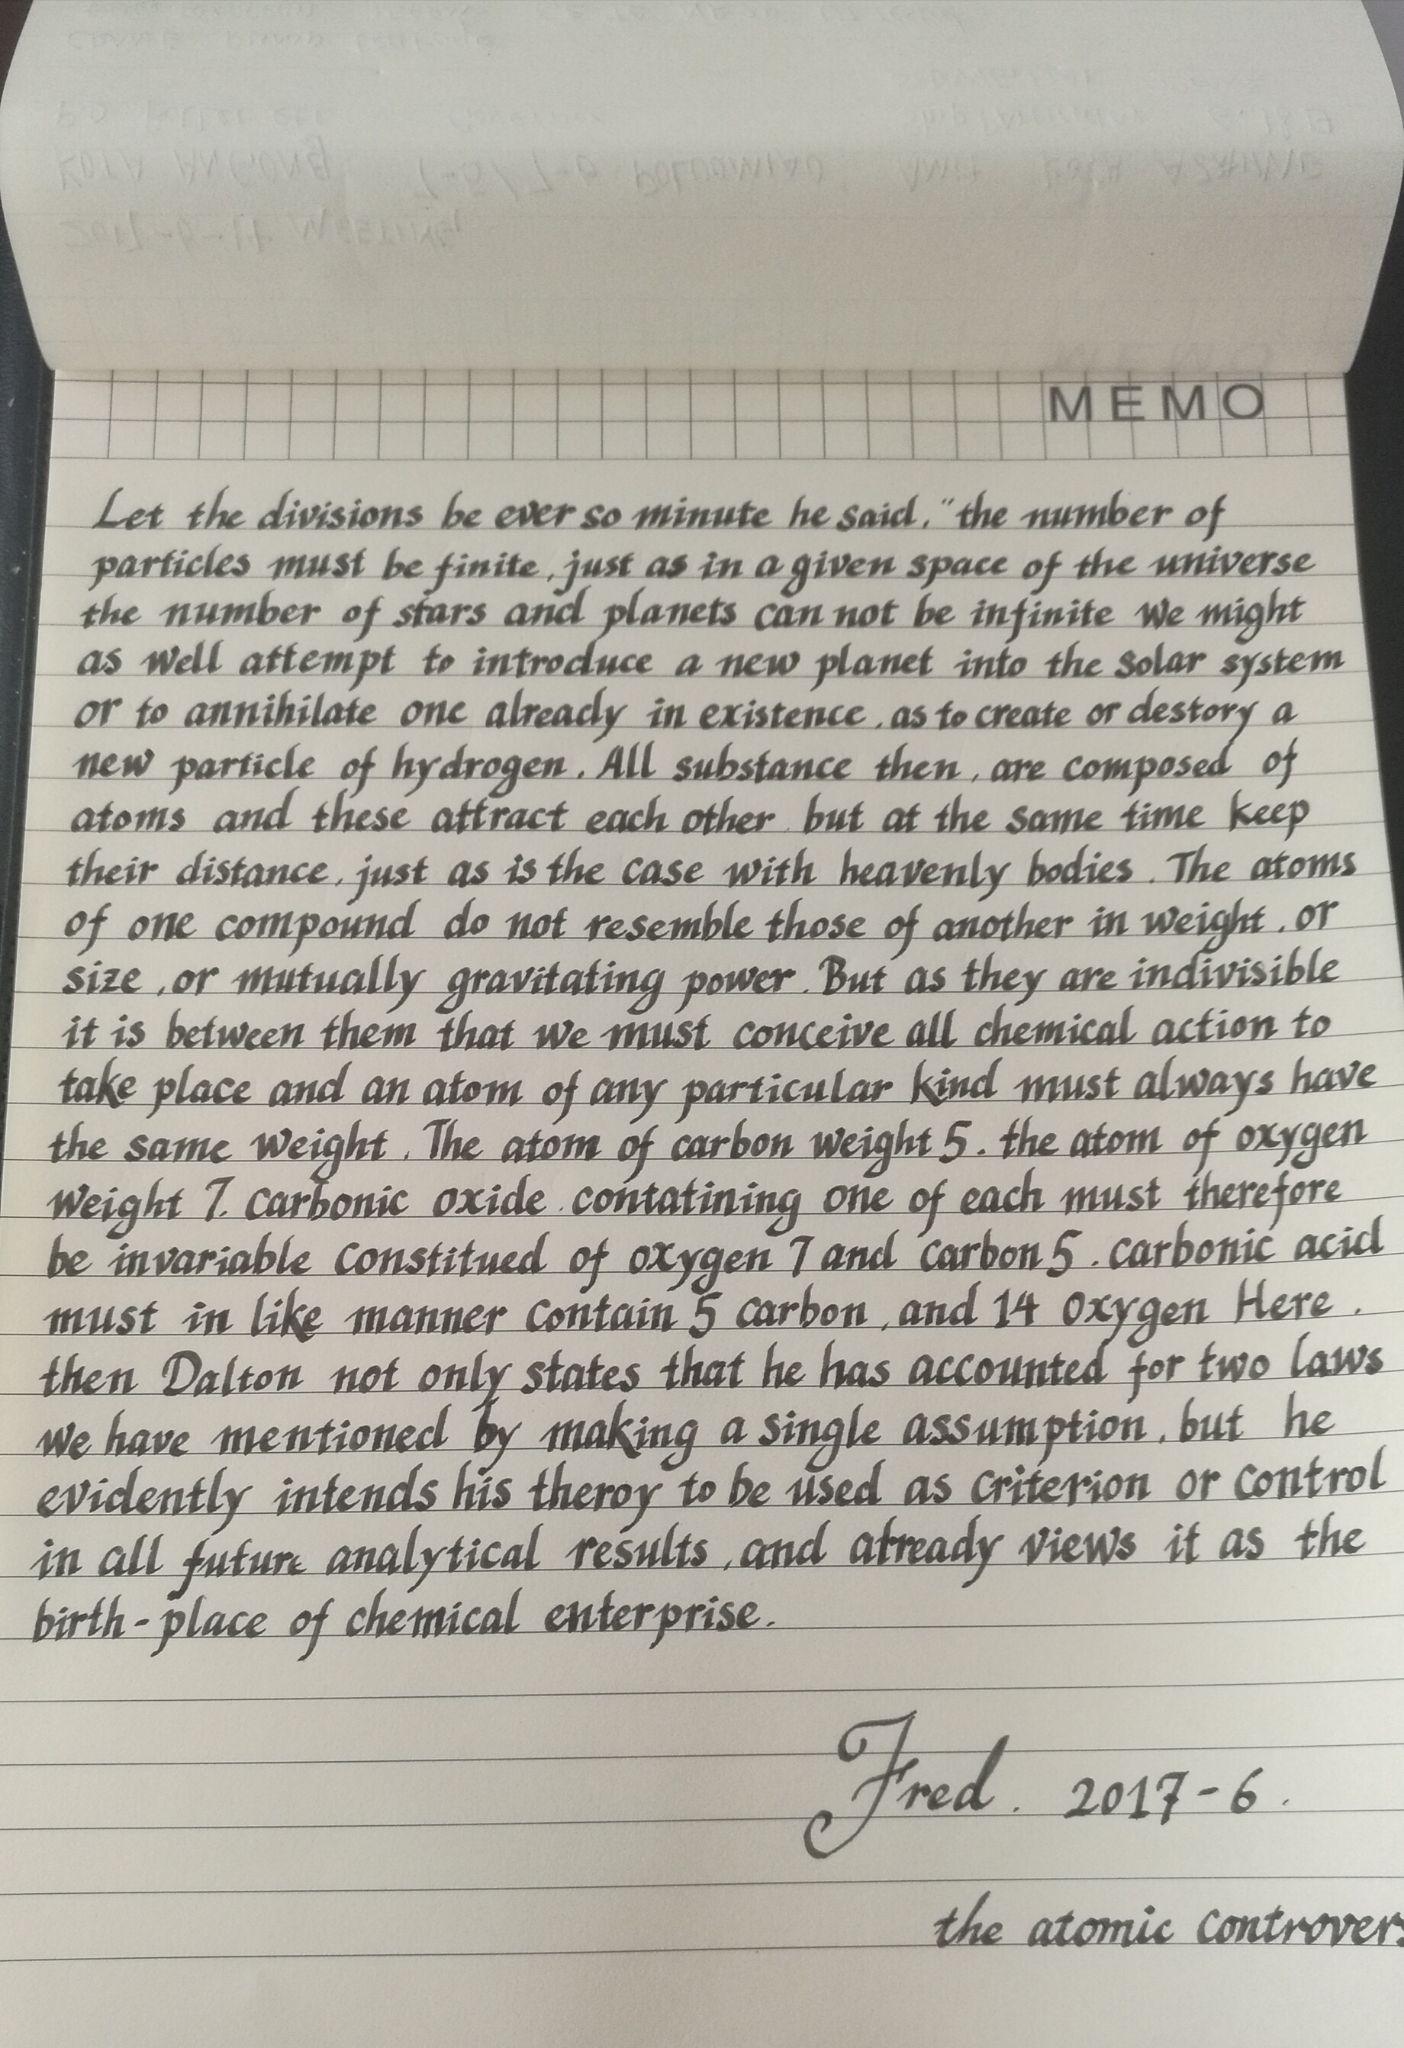 MEMO
Let the divisions be ever so minute he said, "the number of
particles must be finite, just as in a given space of the universe
the number of stars and planets can not be infinite We might
as well attempt to introduce a new planet into the solar system
or to annihilate one already in existence, as to create or destory a
new particle of hydrogen. All substance then, are composed of
atoms and these attract each other but at the same time keep
their distance, just as is the case with heavenly bodies. The atoms
of one compound do not resemble those of another in weight, or
size, or mutually gravitating power. But as they are indivisible
it is between them that we must conceive all chemical action to
take place and an atom of any particular kind must always have
the same weight. The atom of carbon weight 5. the atom of oxygen
weight 7. Carbonic oxide contatining one of each must therefore
be invariable constitued of oxygen 7 and carbon 5. carbonic acid
must in like manner contain 5 carbon, and 14 oxygen Here.
then Dalton not only states that he has accounted for two laws
we have mentioned by making a single assumption, but he
evidently intends his theroy to be used as criterion or control
in all future analytical results, and already views it as the
birth-place of chemical enterprise.
Fred. 2017-6.
the atomic controvers